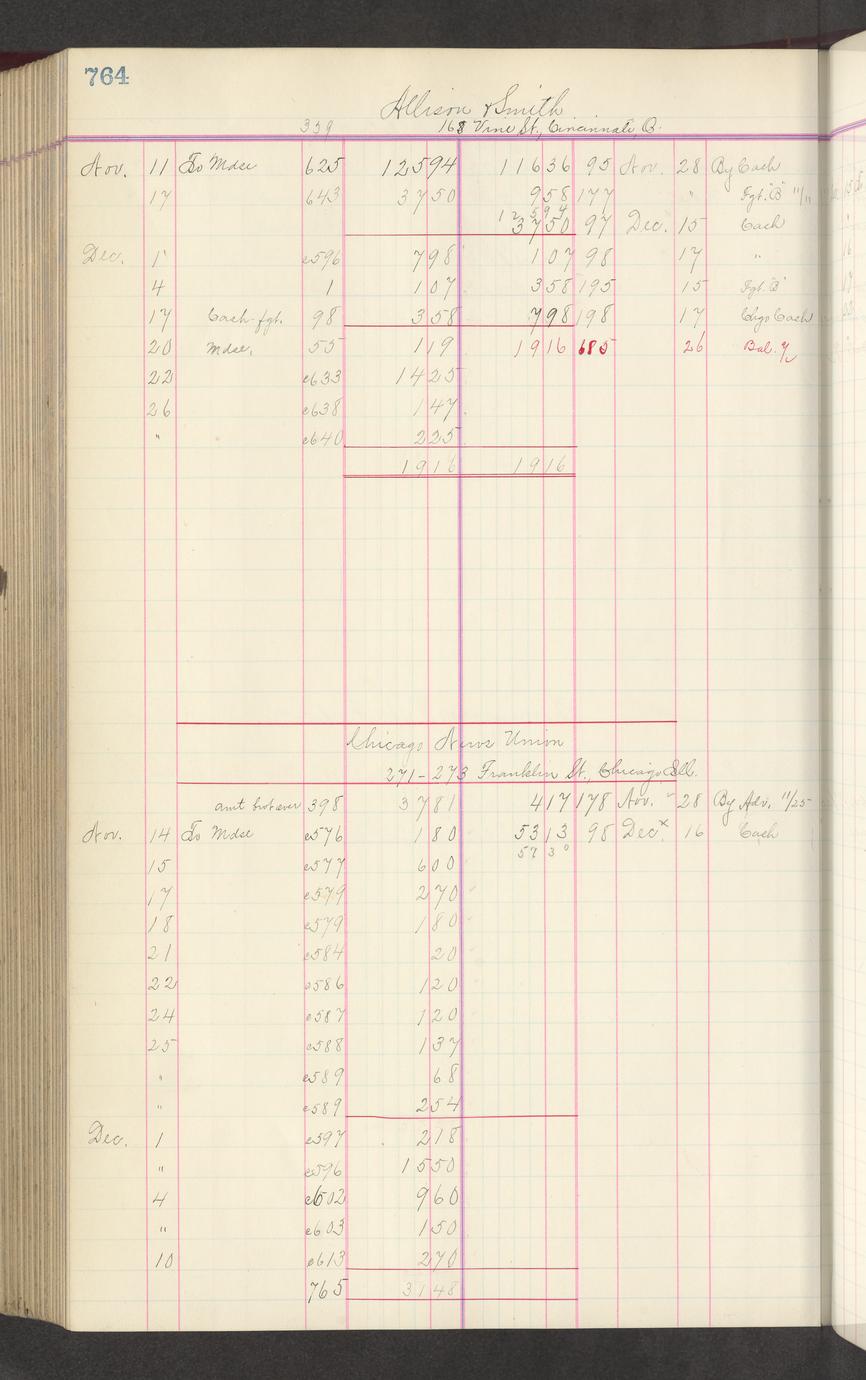 764
Allison & Smith
359 168 Vine St., Cincinnati, O.
Nov. 11 To Mdse 625 12594 11636 95 Nov. 28 By Cash
17 643 3750 958 177 " Fgt. "B" 11/11
12594
3750 97 Dec. 15 Cash
Dec. 1 e596 798 107 98 17 "
4 1 107 358 195 15 Fgt. "B"
17 Cash-fgt. 98 358 798 198 17 Chgo Cash
20 Mdse. 55 119 1916 685 26 Bal.
22 e633 1425
26 e638 147
" e640 225
1916 1916
Chicago News Union
271-273 Franklin St., Chicago Ill.
amt brot over 398 3781 417 178 Nov. 28 By Adv. 11/25
Nov. 14 To Mdse e576 180 5313 98 Dec. x 16 Cash
15 e577 600 5730
17 e579 270
18 e579 180
21 e584 20
22 e586 120
24 e587 120
25 e588 137
" e589 68
" e589 254
Dec. 1 e597 218
" e596 1550
4 e602 960
" e603 150
10 e613 270
765 3148